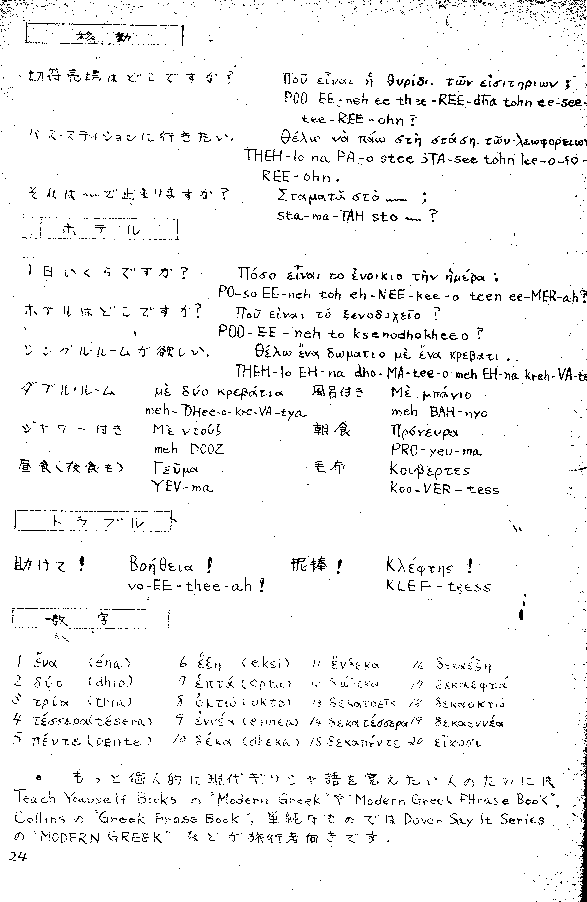 移動
切符売場はどこですか? Ποῦ εἶναι ἡ θυρίδι. τῶν εἰσιτηριων ;
POO EE-neh ee thee-REE-dha tohn ee-see-
tee-REE-ohn?
バス・ステイションに行きたい. Θέλω νὰ πάω στὴ στάση. τῶν λεωφορειων
THEH-lo na PA-o stee STA-see tohn lee-o-fo-
REE-ohn.
それは〜で止まりますか? Σταματᾶ στὸ — ;
sta-ma-TAH sto — ?
ホテル
1日いくらですか? Πόσο εἶναι το ἐνοικιο τὴν ἡμέρα ;
PO-so EE-neh toh eh-NEE-kee-o teen ee-MER-ah?
ホテルはどこですか? Ποῦ εἶναι τὸ ξενοδοχεῖο ?
POO-EE-neh to ksenodhokheeo?
シングルルームが欲しい. Θέλω ἕνα δωματιο μὲ ἕνα κρεβατι..
THEH-lo EH-na dho-MA-tee-o meh EH-na kreh-VA-te
ダブル・ルーム μὲ δύο κρεβάτια 風呂付き Μὲ μπάνιο
meh-DHee-o-kre-VA-tya meh BAH-nyo
シャワー付き Μὲ ντούζ 朝食 Πρόγευμα
meh DOOZ PRO-yeu-ma
昼食(夜食も) Γεῦμα 毛布 Κουβέρτες
YEV-ma Koo-VER-tess
トラブル
助けて! Βοήθεια ! 泥棒! Κλέφτης !
vo-EE-thee-ah! KLEF-teess
数字
1 ἕνα (éna) 6 ἕξη (eksi) 11 ἕνδεκα 16 δεκαέξη
2 δύο (dhio) 7 ἑπτά (epta) 12 δώδεκα 17 δεκαεφτά
3 τρία (tria) 8 ὀκτώ (okto) 13 δεκατρεῖς 18 δεκαοκτώ
4 τέσσερα (tésera) 9 ἐννέα (ennea) 14 δεκατέσσερα 19 δεκαεννέα
5 πέντε (pente) 10 δέκα (dheka) 15 δεκαπέντε 20 εἴκοσι
● もっと個人的に現代ギリシャ語を覚えたい人のためには
Teach Yourself Books の "Modern Greek" や "Modern Greek PHrase Book",
Collins の "Greek Prase Book", 単純なものでは Dover Say It Series
の "MODERN GREEK" などが旅行者向きです.
24